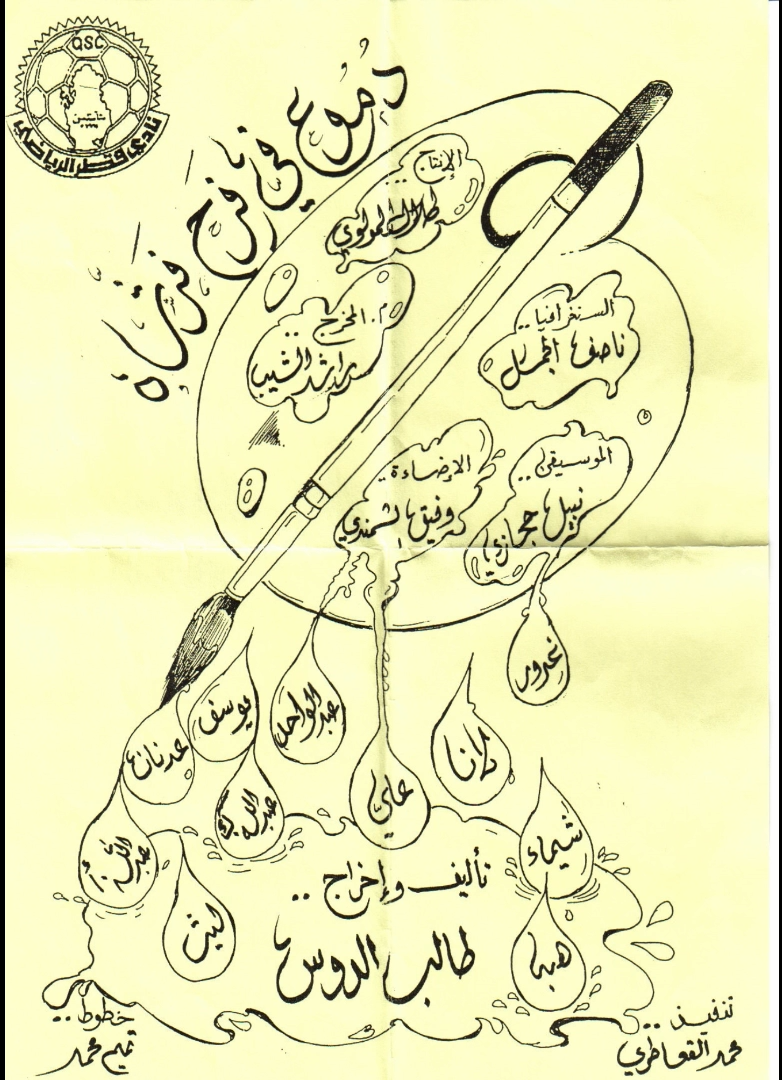 QSC
نادي قطر الرياضي
دموع في فرح فرشاه
الإنتاج ..
طلال المولوي
م. المخرج ..
راشد الشيب
السنغرافيا ..
ناصف الجمل
الإضاءة ..
وفيق الشمندي
الموسيقى ..
نبيل حجازي
غدور
عبد الواحد
يوسف
عدنان
لانا
علي
عبدالله ك
عبدالله أ
شيماء
ليث
هبه
تأليف وإخراج ..
طالب الدوس
خطوط ..
تميم محمد
تنفيذ ..
محمد القعاطري